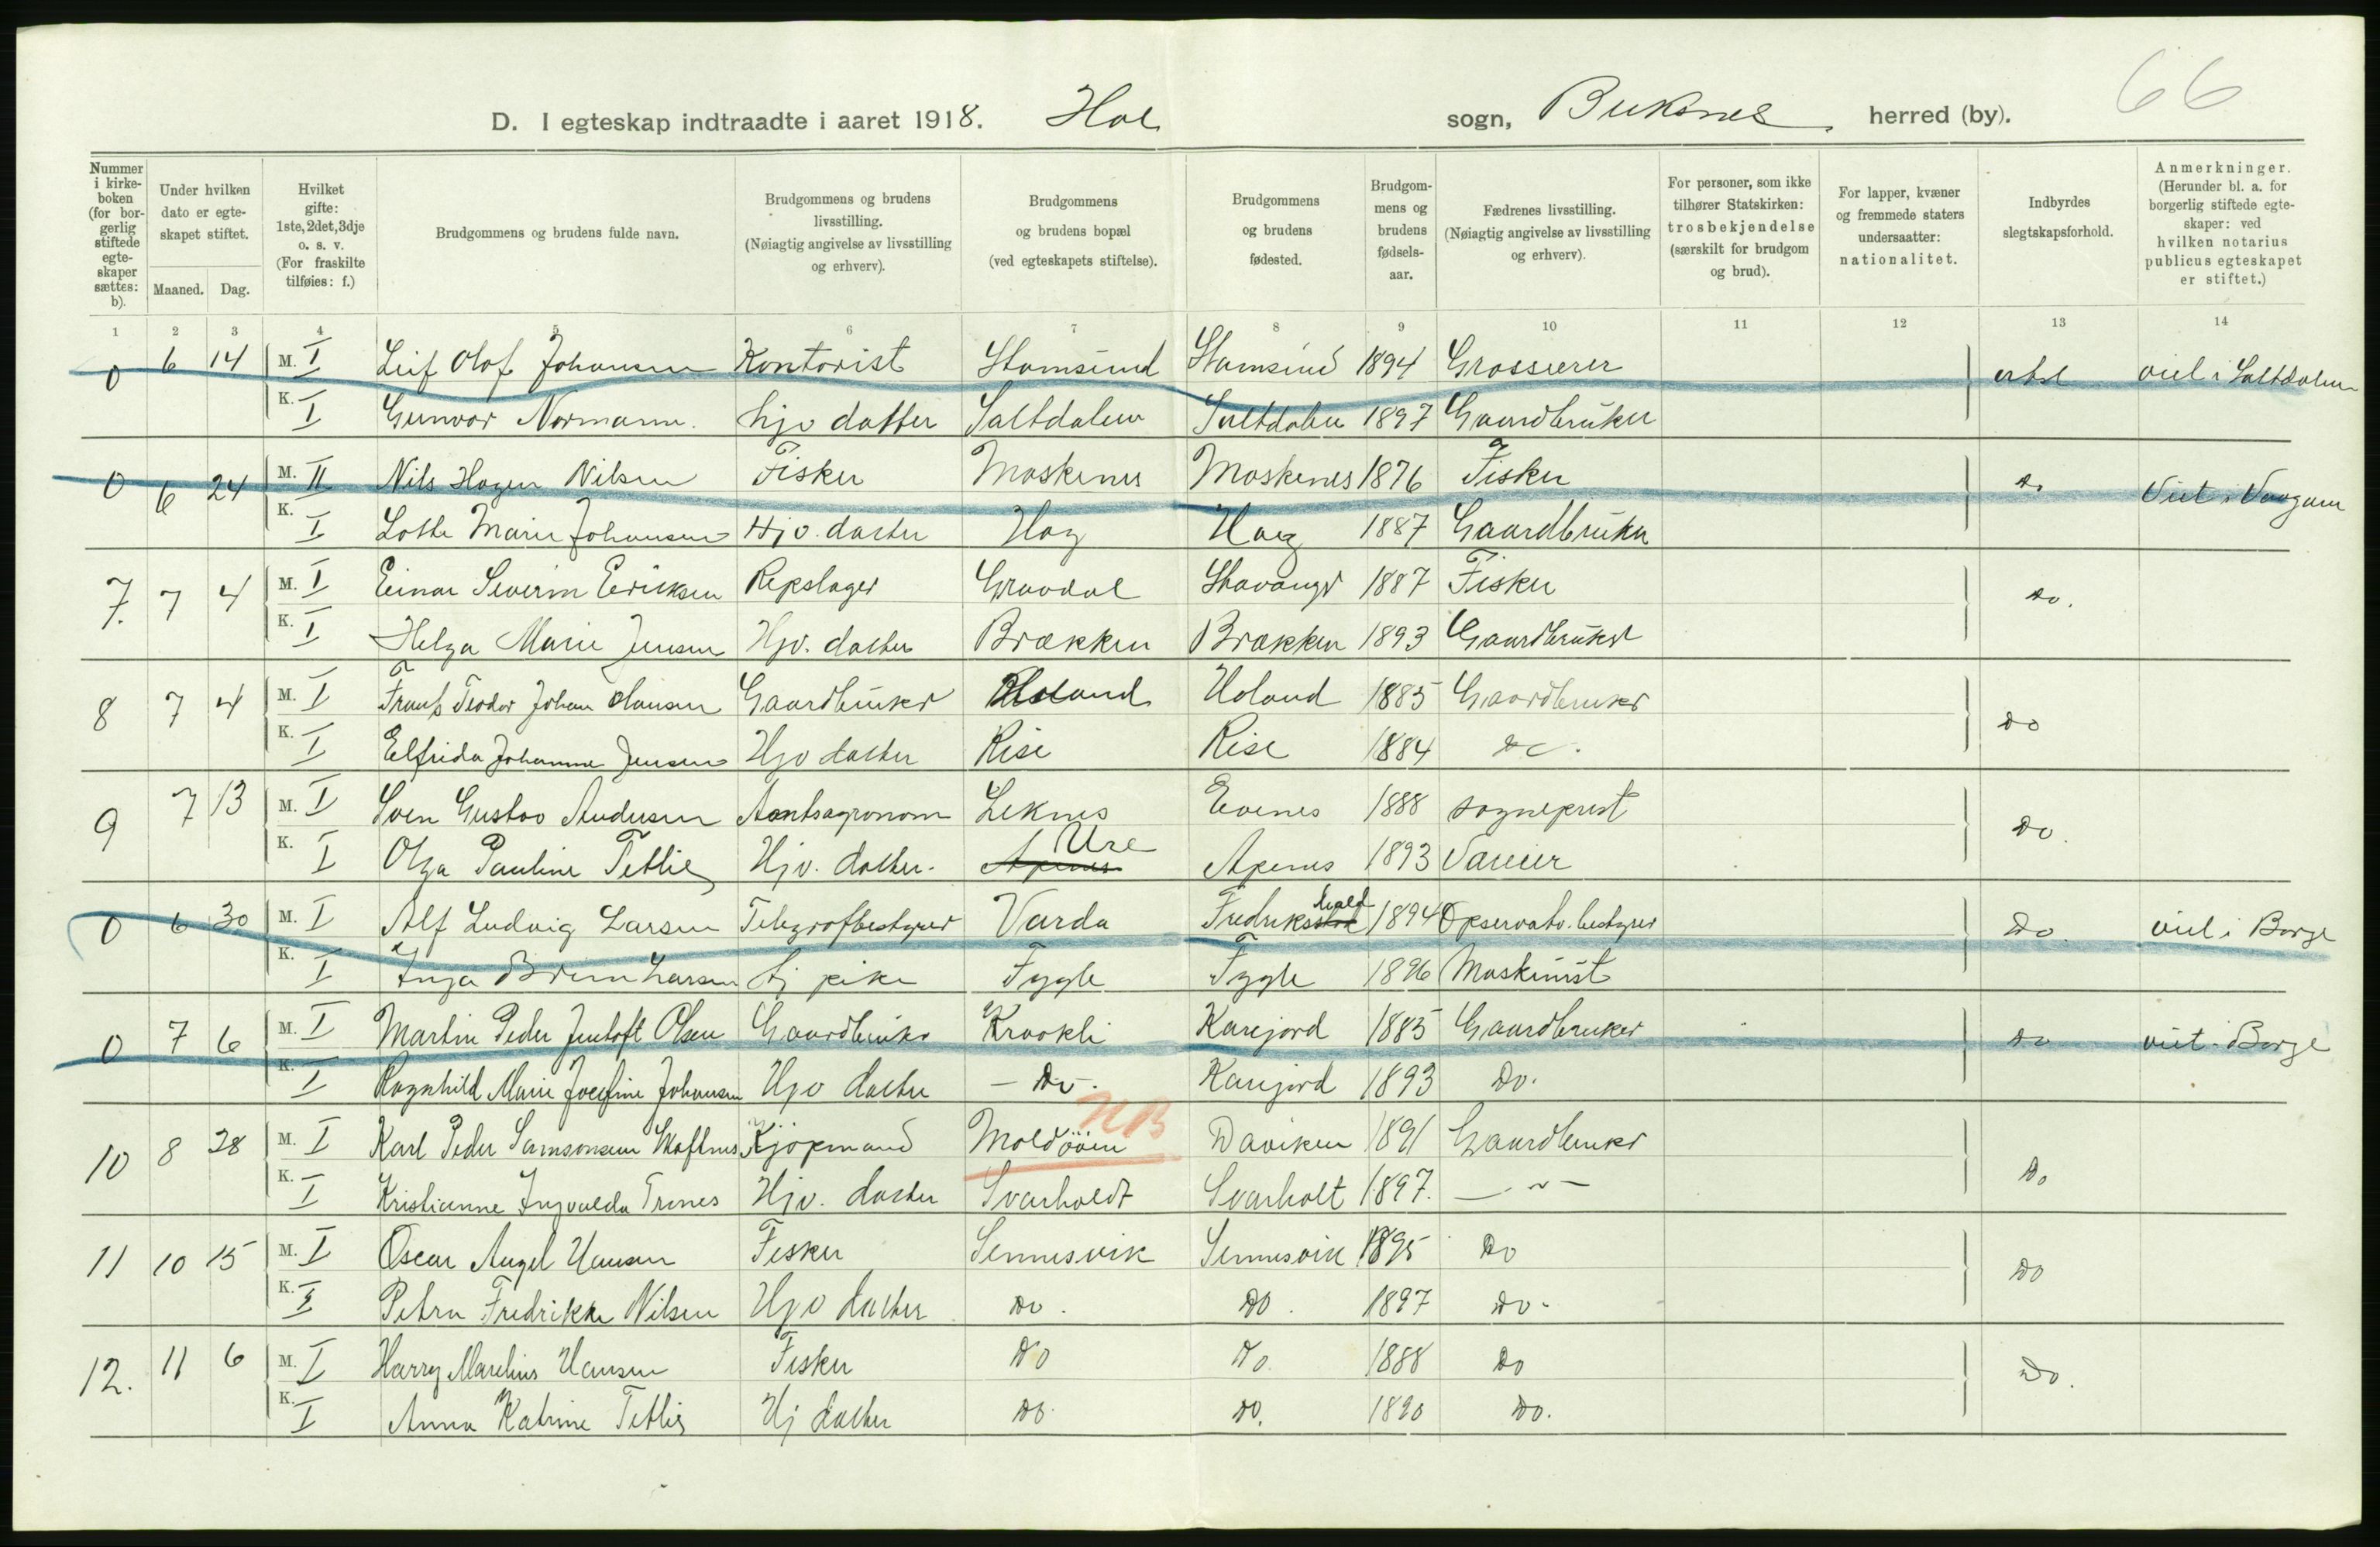 66
D. I egteskap indtraadte i aaret 1918. Hol sogn, Buksnes herred (by).
Nummer i kirke-boken (for bor-gerlig stiftede egte-skaper sættes: b).
Under hvilken dato er egte-skapet stiftet.
Maaned. Dag.
Hvilket gifte: 1ste, 2det, 3dje o. s. v. (For fraskilte tilføies: f.)
Brudgommens og brudens fulde navn.
Brudgommens og brudens livsstilling. (Nøiagtig angivelse av livsstilling og erhverv).
Brudgommens og brudens bopæl (ved egteskapets stiftelse).
Brudgommens og brudens fødested.
Brudgom-mens og brudens fødsels-aar.
Fædrenes livsstilling. (Nøiagtig angivelse av livsstilling og erhverv).
For personer, som ikke tilhører Statskirken: trosbekjendelse (særskilt for brudgom og brud).
For lapper, kvæner og fremmede staters undersaatter: nationalitet.
Indbyrdes slegtskapsforhold.
Anmerkninger. (Herunder bl. a. for borgerlig stiftede egte-skaper: ved hvilken notarius publicus egteskapet er stiftet.)
1 2 3 4 5 6 7 8 9 10 11 12 13 14
0 6 14 M. I Leif Olof Johansen Kontorist Stamsund Stamsund 1894 Grosserer viet i Saltdalen
K. I Gunvor Normann. hjv datter Saltdalen Saltdalen 1897 Gaardbruker
0 6 24 M. II Nils Hagen Nilsen Fisker Moskenes Moskenes 1876 Fisker Do Viet i Vaagan
K. I Lotte Marie Johansen Hjv. datter Hag Haag 1887 Gaardbruker
7. 7 4 M. I Einar Severin Eriksen Repslager Gravdal Stavanger 1887 Fisker Do.
K. I Helga Marie Jensen Hjv. datter Brækken Brækken 1893 Gaardbruker
8 7 4 M. I Frants Teodor Johan Hansen Gaardbruker Holand Holand 1885 Gaardbruker Do
K. I Elfrida Johanne Jensen Hjv datter Rise Rise 1884 Do.
9 7 13 M. I Sven Gustav Andersen Amtsagronom Leknes Evenes 1888 sogneprest Do.
K. I Olga Pauline Tetlie Hjv. datter. Apenes Ure Apenes 1893 Væreier
0 6 30 M. I Alf Ludvig Larsen Telegrafbestyrer Vardø Fredriksstad hald 1894 Opservato. bestyrer Do viet i Borge
K. I Inga Brim Larsen Hj pike Fygle Fygle 1896 Maskinist
0 7 6 M. I Martin Peder Jentoft Olsen Gaardbruker Kraakli Karejord 1885 Gaardbruker Do viet i Borge
K. I Ragnhild Marie Josefine Johansen Hjv datter - Do. Karejord 1893 Do.
NB
10 8 28 M. I Karl Peder Samsonsen Skaftnes Kjøpmand Moldöen Daviken 1891 Gaardbruker Do
K. I Kristianne Ingvalda Trones Hjv. datter Svarholdt Svarholt 1897. — " —
11 10 15 M. I Oscar Angel Hansen Fisker Sennesvik Sennesvik 1895 Do Do
K. I Petra Fredrikke Nilsen Hjv datter Do. Do. 1897 Do.
12. 11 6 M. I Harry Marelius Hansen Fisker Do Do. 1888 Do Do.
K. I Anna Katrine Tetlie Hj datter Do. Do. 1890 Do.